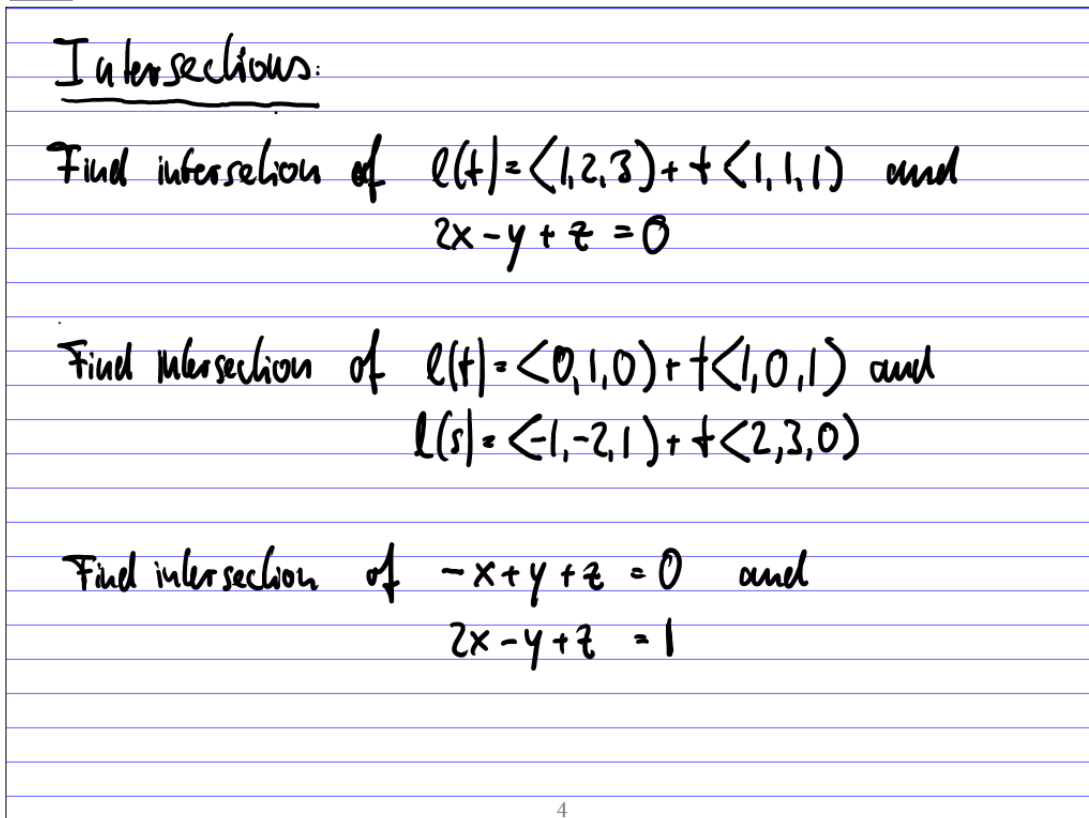 Intersections:
Find interselion of l(t)=<1,2,3)+t<1,1,1) and
2x-y+z=0
Find Intersection of l(t)=<0,1,0)+t<1,0,1) and
l(s)=<-1,-2,1)+t<2,3,0)
Find intersection of -x+y+z=0 and
2x-y+z=1
4